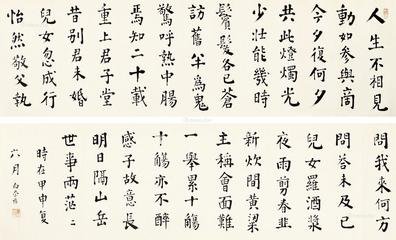 人生不相見
動如參與商
今夕復何夕
共此燈燭光
少壯能幾時
鬢髮各已蒼
訪舊半為鬼
驚呼熱中腸
焉知二十載
重上君子堂
昔別君未婚
兒女忽成行
怡然敬父執
問我來何方
問答未及已
兒女羅酒漿
夜雨剪春韭
新炊間黃粱
主稱會面難
一舉累十觴
十觴亦不醉
感子故意長
明日隔山岳
世事兩茫々
時在甲申夏
六月